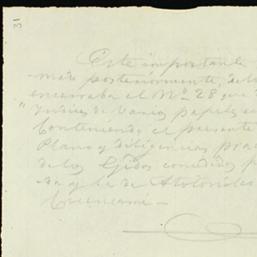 31
Este importante
mado posteriormente, de la
encerraba el Nº 28 que
"Indice de Varios papeles
Conteniendo el presente
Plano y diligencias prac
de los Ejidos concedidos p
da y la de Atotonilco
Cuencamé —